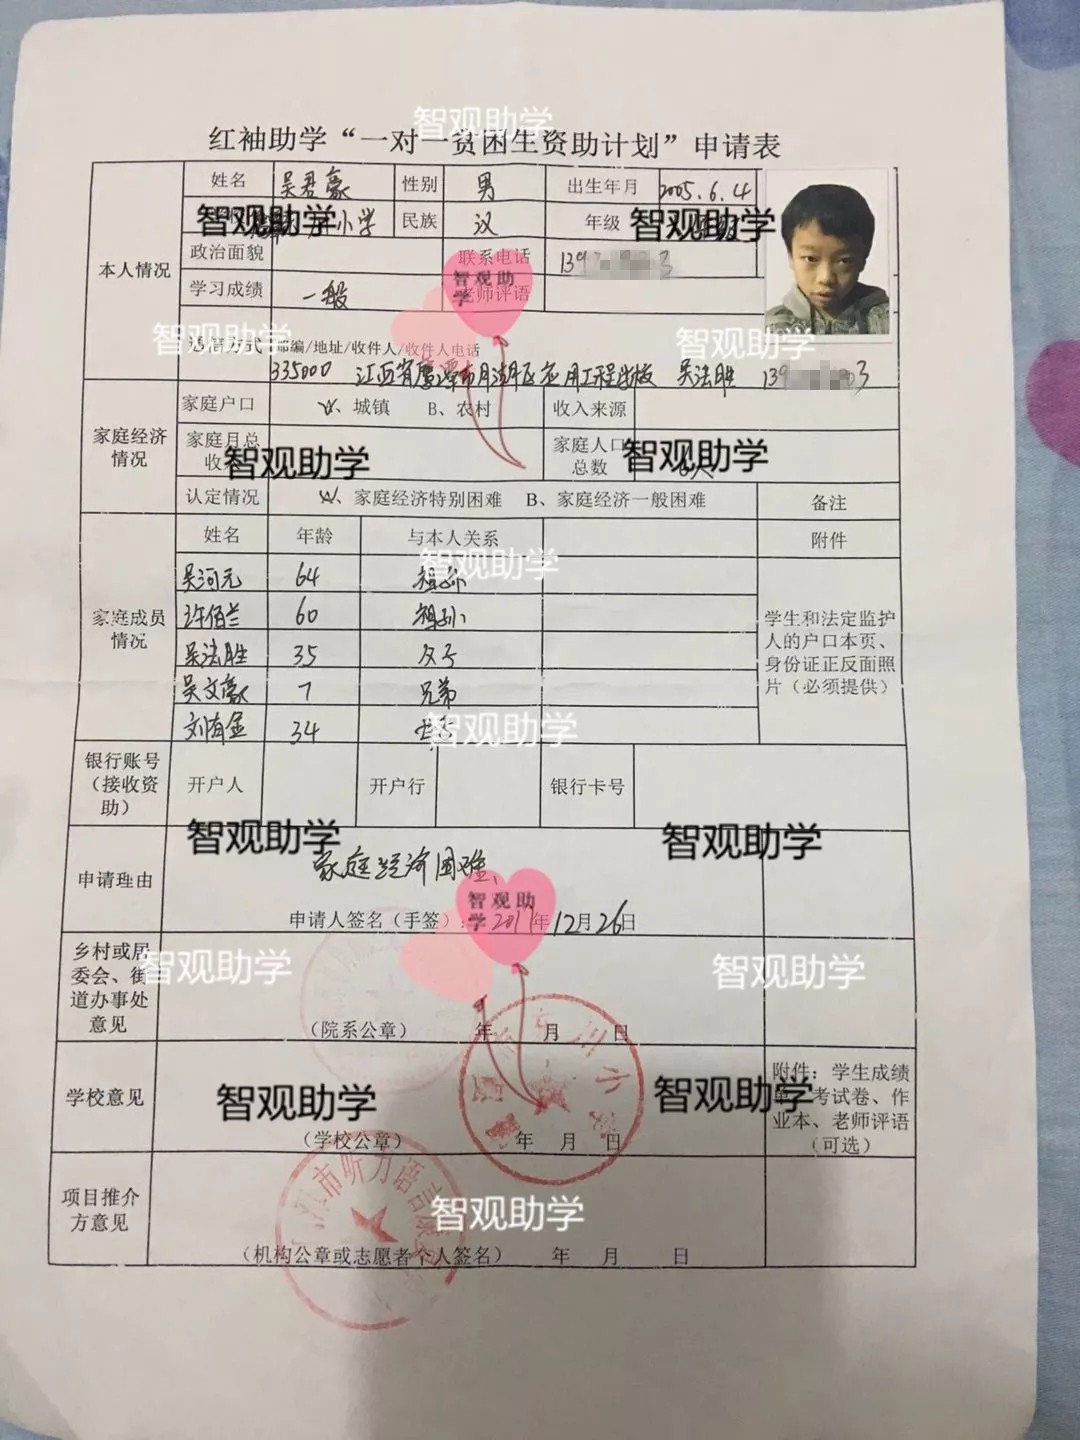 智观助学
红袖助学“一对一贫困生资助计划”申请表
本人情况
姓名 吴君豪 性别 男 出生年月 2005.6.4
智观助学 小学 民族 汉 年级 智观助学
政治面貌 联系电话 139 3
学习成绩 一般 老师评语
智观助学
智观助学 智观助学
通信方式 邮编/地址/收件人/收件人电话
335000 江西省鹰潭市月湖区应用工程学校 吴法胜 139 3
家庭经济情况
家庭户口 A、城镇 B、农村 收入来源
家庭月总收 家庭人口总数 人
智观助学 智观助学
认定情况 A、家庭经济特别困难 B、家庭经济一般困难 备注
家庭成员情况
姓名 年龄 与本人关系 附件
智观助学
吴河元 64 祖孙
许佰兰 60 祖孙
吴法胜 35 父子
吴文豪 7 兄弟
刘有金 34 母子
智观助学
学生和法定监护人的户口本页、身份证正反面照片（必须提供）
银行账号（接收资助） 开户人 开户行 银行卡号
智观助学 智观助学
申请理由 家庭经济困难、
智观助学
申请人签名（手签）: 2017年12月26日
乡村或居委会、街道办事处意见
智观助学 智观助学
（院系公章） 年 月 日
学校意见
智观助学 智观助学
（学校公章） 年 月 日
附件：学生成绩单、考试卷、作业本、老师评语（可选）
项目推介方意见
市听力语言康
智观助学
（机构公章或志愿者个人签名） 年 月 日